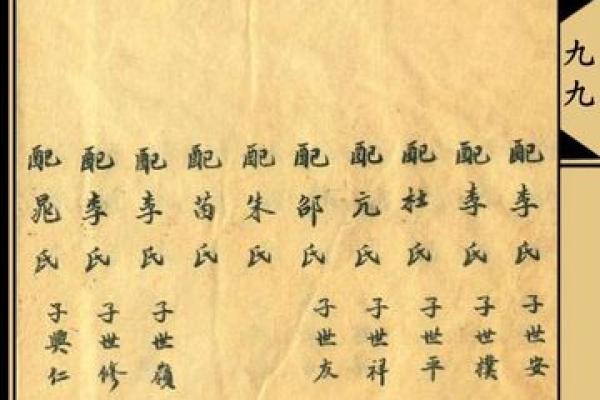 九九
配李氏 子世安
配李氏 子世樸
配杜氏 子世平
配亢氏 子世祥
配邵氏 子世友
配朱氏
配苗氏
配李氏 子世嶺
配李氏 子世修
配晁氏 子興仁